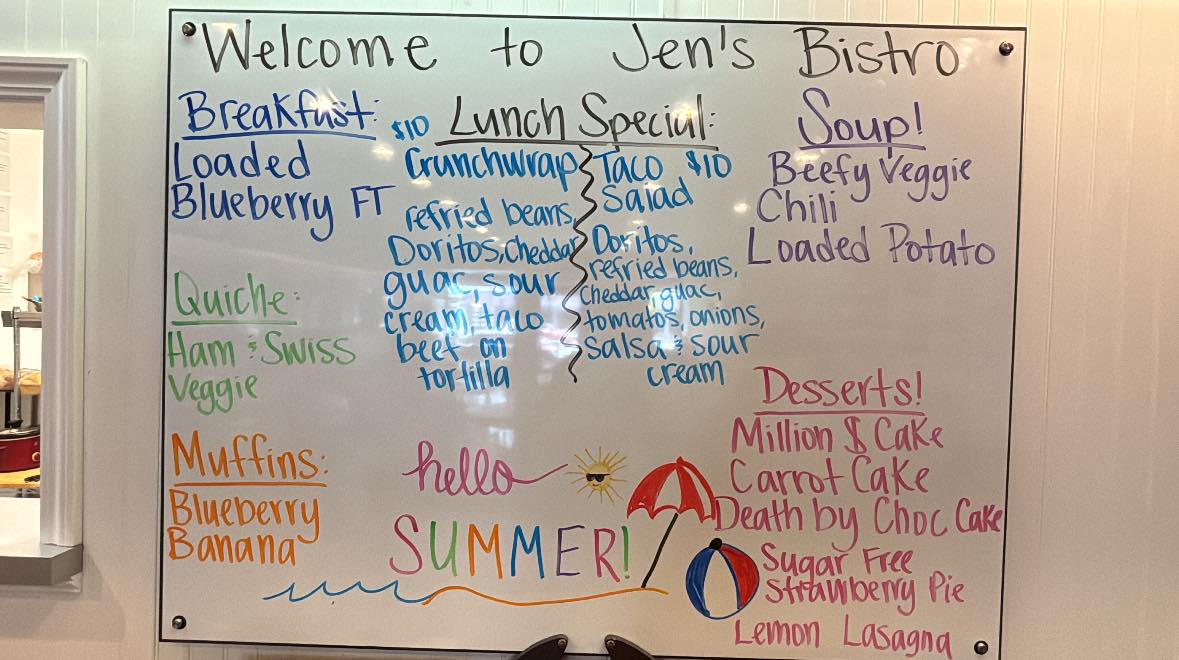 Welcome to Jen's Bistro
Breakfast:
Loaded
Blueberry FT
Quiche:
Ham & Swiss
Veggie
Muffins:
Blueberry
Banana
Lunch Special:
$10
Crunchwrap
refried beans,
Doritos, Cheddar
guac, sour
cream, taco
beef on
tortilla
Taco $10
Salad
Doritos,
refried beans,
cheddar, guac,
tomatos, onions,
salsa & sour
cream
hello
SUMMER!
Soup!
Beefy Veggie
Chili
Loaded Potato
Desserts!
Million $ Cake
Carrot Cake
Death by Choc Cake
Sugar Free
Strawberry Pie
Lemon Lasagna